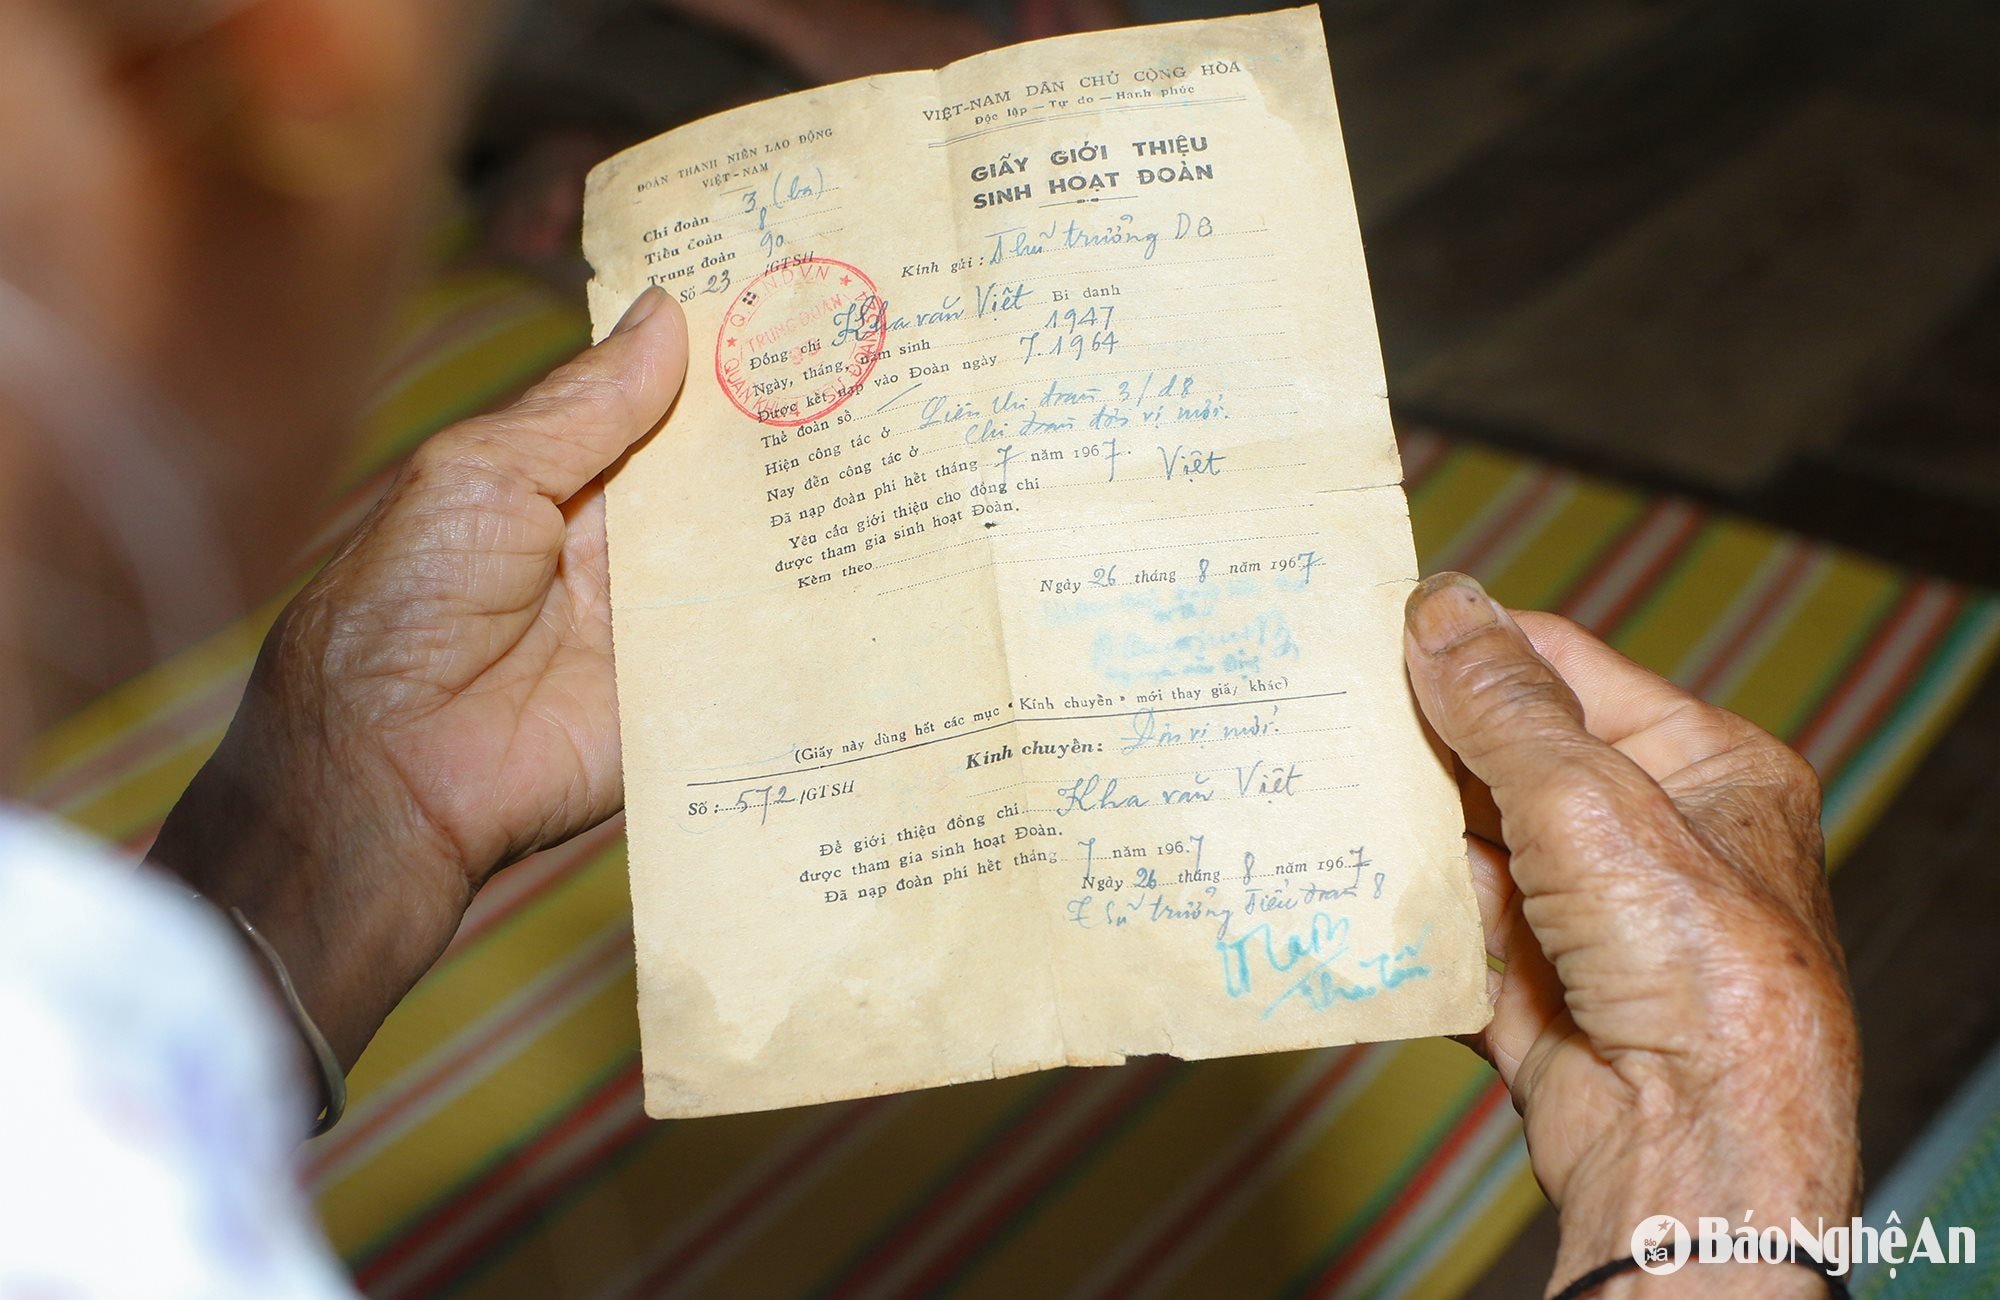 VIỆT-NAM DÂN CHỦ CỘNG HÒA
Độc lập — Tự do — Hạnh phúc
ĐOÀN THANH NIÊN LAO ĐỘNG
VIỆT-NAM
Chi đoàn 3 (ba)
Tiểu đoàn 8
Trung đoàn 90
Số 23 /GTSH
GIẤY GIỚI THIỆU
SINH HOẠT ĐOÀN
Kính gửi: Thủ trưởng D8
Đồng chí Kha văn Việt Bí danh
Ngày, tháng, năm sinh 1947
Được kết nạp vào Đoàn ngày 7.1964
Thẻ đoàn số
Hiện công tác ở Liên chi đoàn 3/d8
Nay đến công tác ở chi đoàn đơn vị mới.
Đã nạp đoàn phí hết tháng 7 năm 1967.
Yêu cầu giới thiệu cho đồng chí Việt
được tham gia sinh hoạt Đoàn.
Kèm theo
Ngày 26 tháng 8 năm 1967
(Giấy này dùng hết các mục « Kính chuyển » mới thay giấy khác)
Kính chuyển: Đơn vị mới.
Số: 572/GTSH
Để giới thiệu đồng chí Kha văn Việt
được tham gia sinh hoạt Đoàn.
Đã nạp đoàn phí hết tháng 7 năm 1967
Ngày 26 tháng 8 năm 1967
Thủ trưởng Tiểu đoàn 8
Q.Đ.N.D.V.N
TRUNG ĐOÀN
QUÂN KHU
BáoNghệAn